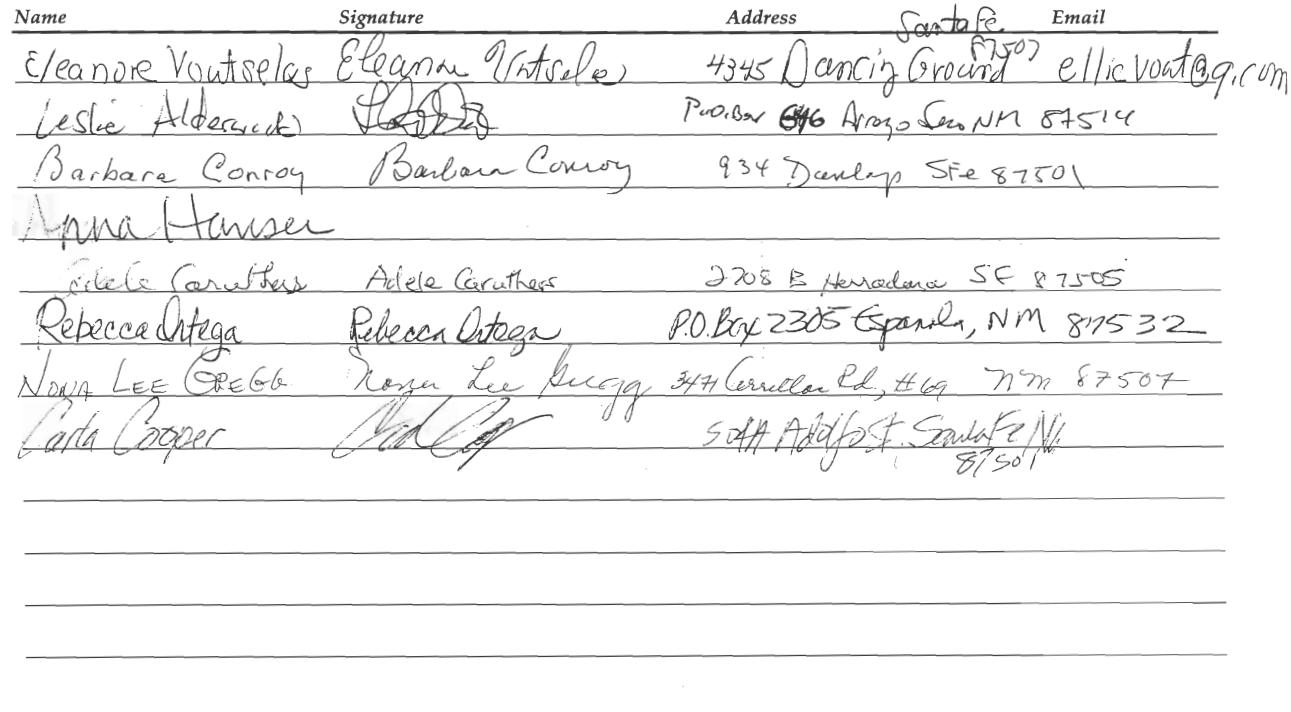 Name Signature Address Email
Santa Fe
Eleanore Voutselas Eleanore Voutselas 4345 Dancing Ground 87507 ellievout@q.com
Leslie P.O. Box Arroyo Seco NM 87514
Barbara Conroy Barbara Conroy 934 Dunlap SFe 87501
Anna Hansen
Adele Caruthers Adele Caruthers 2708 B Herradura SF 87505
Rebecca Ortega Rebecca Ortega P.O. Box 2305 Espanola, NM 87532
NONA LEE GREGG Nona Lee Gregg 3471 Cerrillos Rd, #69 NM 87507
Carla Cooper Adolfo St. Santa Fe NM
87501